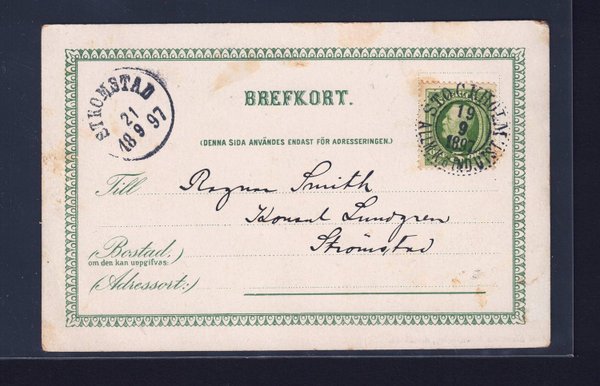 STRÖMSTAD
21
18 9 97
BREFKORT.
STOCKHOLM
19
9
1897
(DENNA SIDA ANVÄNDES ENDAST FÖR ADRESSERINGEN.)
Till
Ragnar Smith
Konsul Lundgren
Strömstad
(Bostad:
om den kan uppgifvas:
(Adressort:)